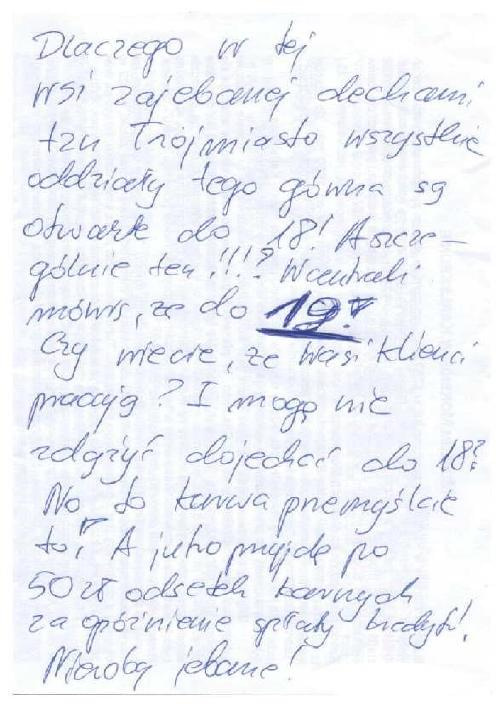 Dlaczego w tej
wsi zajebanej dechami
tzn Trójmiasto wszystkie
oddziały tego gówna są
otwarte do 18! A szcze-
gólnie ten!!!? W centrali
mówią, że do 19!
Czy wiecie, że Wasi klienci
pracują? I mogą nie
zdążyć dojechać do 18?
No to kurwa przemyślcie
to! A jutro przyjdę po
50 zł odsetek karnych
za opóźnienie spłaty kredytu!
Nieroby jebane!